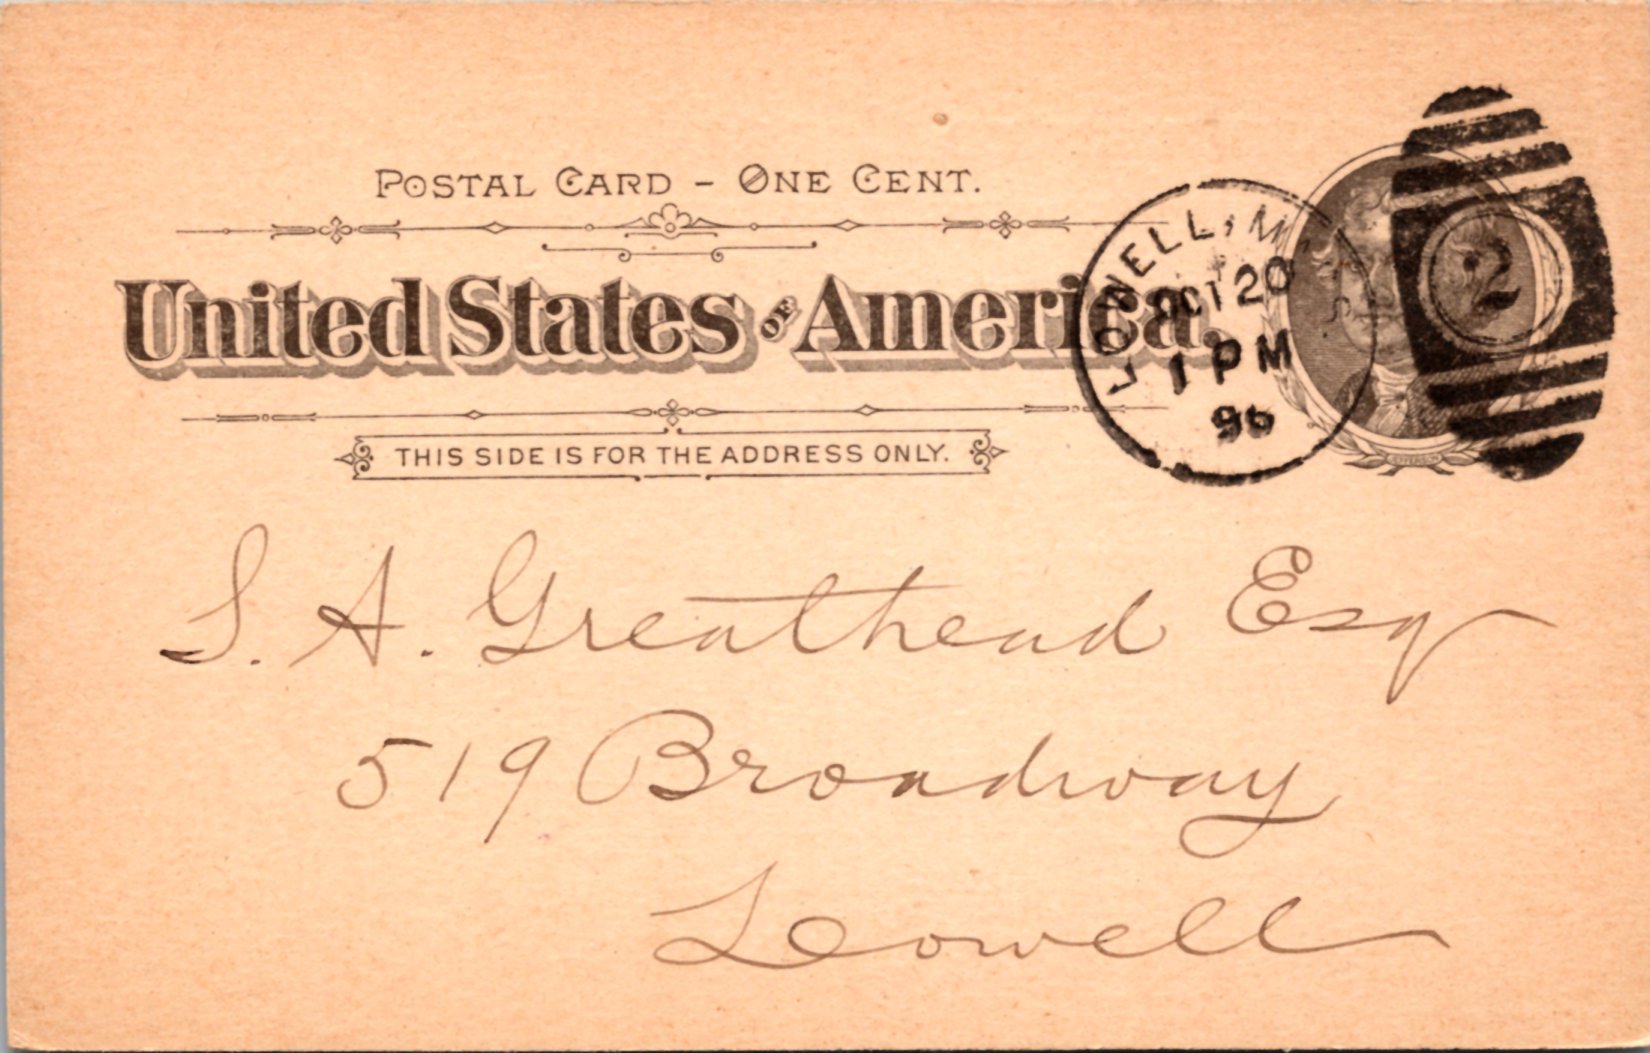 POSTAL CARD - ONE CENT.
United States OF America.
THIS SIDE IS FOR THE ADDRESS ONLY.
LOWELL, M
OCT 20
1 PM
96
2
JEFFERSON
S. A. Greathead Esq
519 Broadway
Lowell